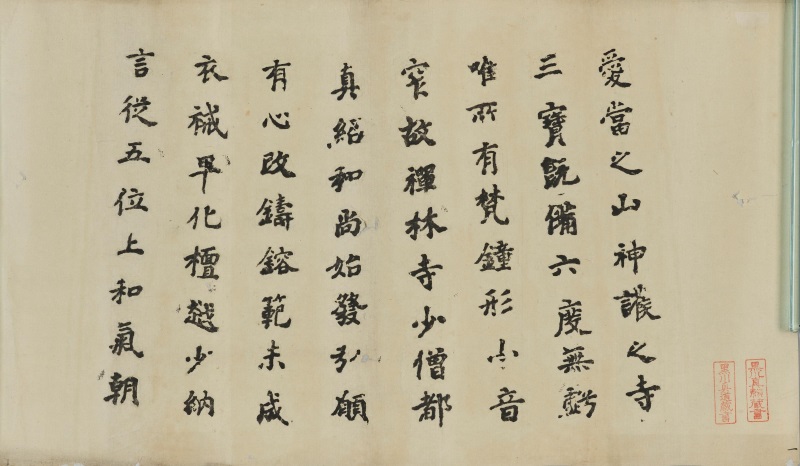 愛當之山神護之寺
三寶既備六度無虧
唯所有梵鐘形小音
窄故禪林寺少僧都
真紹和尚始發弘願
有心改鑄鎔範未成
衣祴早化檀越少納
言從五位上和氣朝
黒川真頼蔵書
黒川真道蔵書